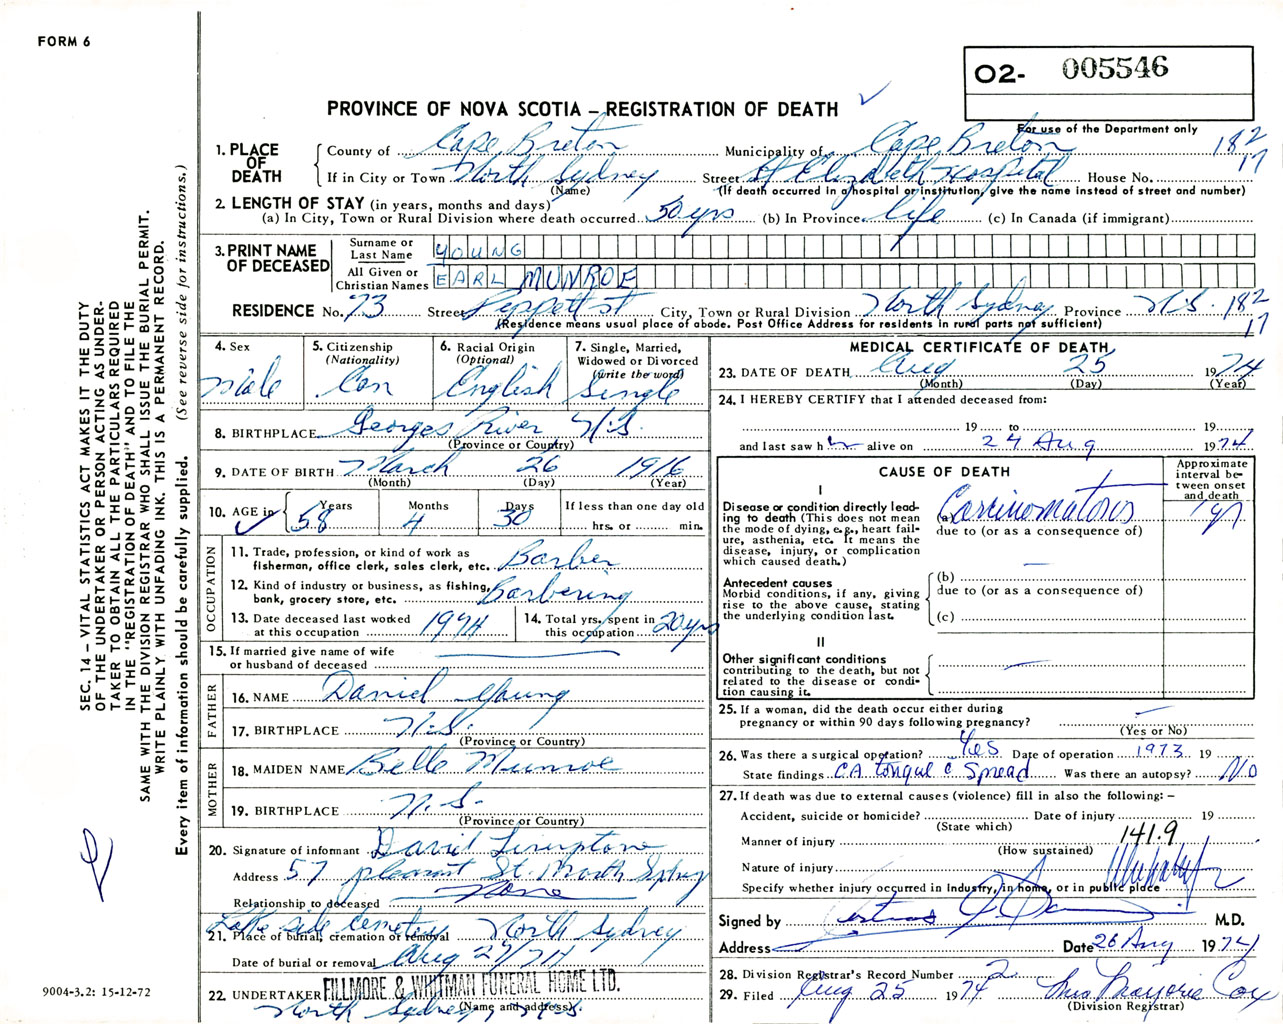 FORM 6
O2- 005546
PROVINCE OF NOVA SCOTIA – REGISTRATION OF DEATH
For use of the Department only
1. PLACE OF DEATH
County of Cape Breton Municipality of Cape Breton 182
If in City or Town North Sydney Street St Elizabeth Hospital House No. 17
(Name) (If death occurred in a hospital or institution, give the name instead of street and number)
2. LENGTH OF STAY (in years, months and days)
(a) In City, Town or Rural Division where death occurred 50 yrs (b) In Province life (c) In Canada (if immigrant)
3. PRINT NAME OF DECEASED
Surname or Last Name YOUNG
All Given or Christian Names EARL MUNROE
RESIDENCE No. 73 Street Peppett st City, Town or Rural Division North Sydney Province N.S. 182
(Residence means usual place of abode. Post Office Address for residents in rural parts not sufficient) 17
4. Sex Male
5. Citizenship (Nationality) Can
6. Racial Origin (Optional) English
7. Single, Married, Widowed or Divorced (write the word) Single
8. BIRTHPLACE Georges River N.S.
(Province or Country)
9. DATE OF BIRTH March 26 1916
(Month) (Day) (Year)
10. AGE in Years 58 Months 4 Days 30 If less than one day old
hrs. or min.
OCCUPATION
11. Trade, profession, or kind of work as
fisherman, office clerk, sales clerk, etc. Barber
12. Kind of industry or business, as fishing,
bank, grocery store, etc. Barbering
13. Date deceased last worked
at this occupation 1974
14. Total yrs. spent in
this occupation 20 yrs
15. If married give name of wife
or husband of deceased
FATHER
16. NAME Daniel Young
17. BIRTHPLACE N.S.
(Province or Country)
MOTHER
18. MAIDEN NAME Belle Munroe
19. BIRTHPLACE N.S.
(Province or Country)
20. Signature of informant David
Address 57 pleasant St. North Sydney
Relationship to deceased None
Lake side Cemetery North Sydney
21. Place of burial, cremation or removal
Date of burial or removal Aug 27/74
22. UNDERTAKER FILLMORE & WHITMAN FUNERAL HOME LTD.
(Name and address)
North Sydney, N.S
MEDICAL CERTIFICATE OF DEATH
23. DATE OF DEATH Aug 25 1974
(Month) (Day) (Year)
24. I HEREBY CERTIFY that I attended deceased from:
19 to 19
and last saw h alive on 24 Aug 1974
CAUSE OF DEATH
Approximate interval between onset and death
I
Disease or condition directly leading to death (This does not mean the mode of dying, e.g., heart failure, asthenia, etc. It means the disease, injury, or complication which caused death.)
(a) Carcinomatosis 1 yr
due to (or as a consequence of)
Antecedent causes
Morbid conditions, if any, giving rise to the above cause, stating the underlying condition last.
(b)
due to (or as a consequence of)
(c)
II
Other significant conditions
contributing to the death, but not related to the disease or condition causing it.
25. If a woman, did the death occur either during
pregnancy or within 90 days following pregnancy?
(Yes or No)
26. Was there a surgical operation? Yes Date of operation 1973 19
State findings CA tongue c Spread Was there an autopsy? No
27. If death was due to external causes (violence) fill in also the following: –
Accident, suicide or homicide? Date of injury 19
(State which)
Manner of injury 141.9
(How sustained)
Nature of injury
Specify whether injury occurred in Industry, in home, or in public place
Signed by M.D.
Address Date 26 Aug 1974
28. Division Registrar's Record Number 2
29. Filed Aug 25 1974 Mrs Marjorie Cox
(Division Registrar)
SEC. 14 – VITAL STATISTICS ACT MAKES IT THE DUTY
OF THE UNDERTAKER OR PERSON ACTING AS UNDER-
TAKER TO OBTAIN ALL THE PARTICULARS REQUIRED
IN THE "REGISTRATION OF DEATH" AND TO FILE THE
SAME WITH THE DIVISION REGISTRAR WHO SHALL ISSUE THE BURIAL PERMIT.
WRITE PLAINLY WITH UNFADING INK. THIS IS A PERMANENT RECORD.
Every item of information should be carefully supplied. (See reverse side for instructions.)
9004-3.2: 15-12-72